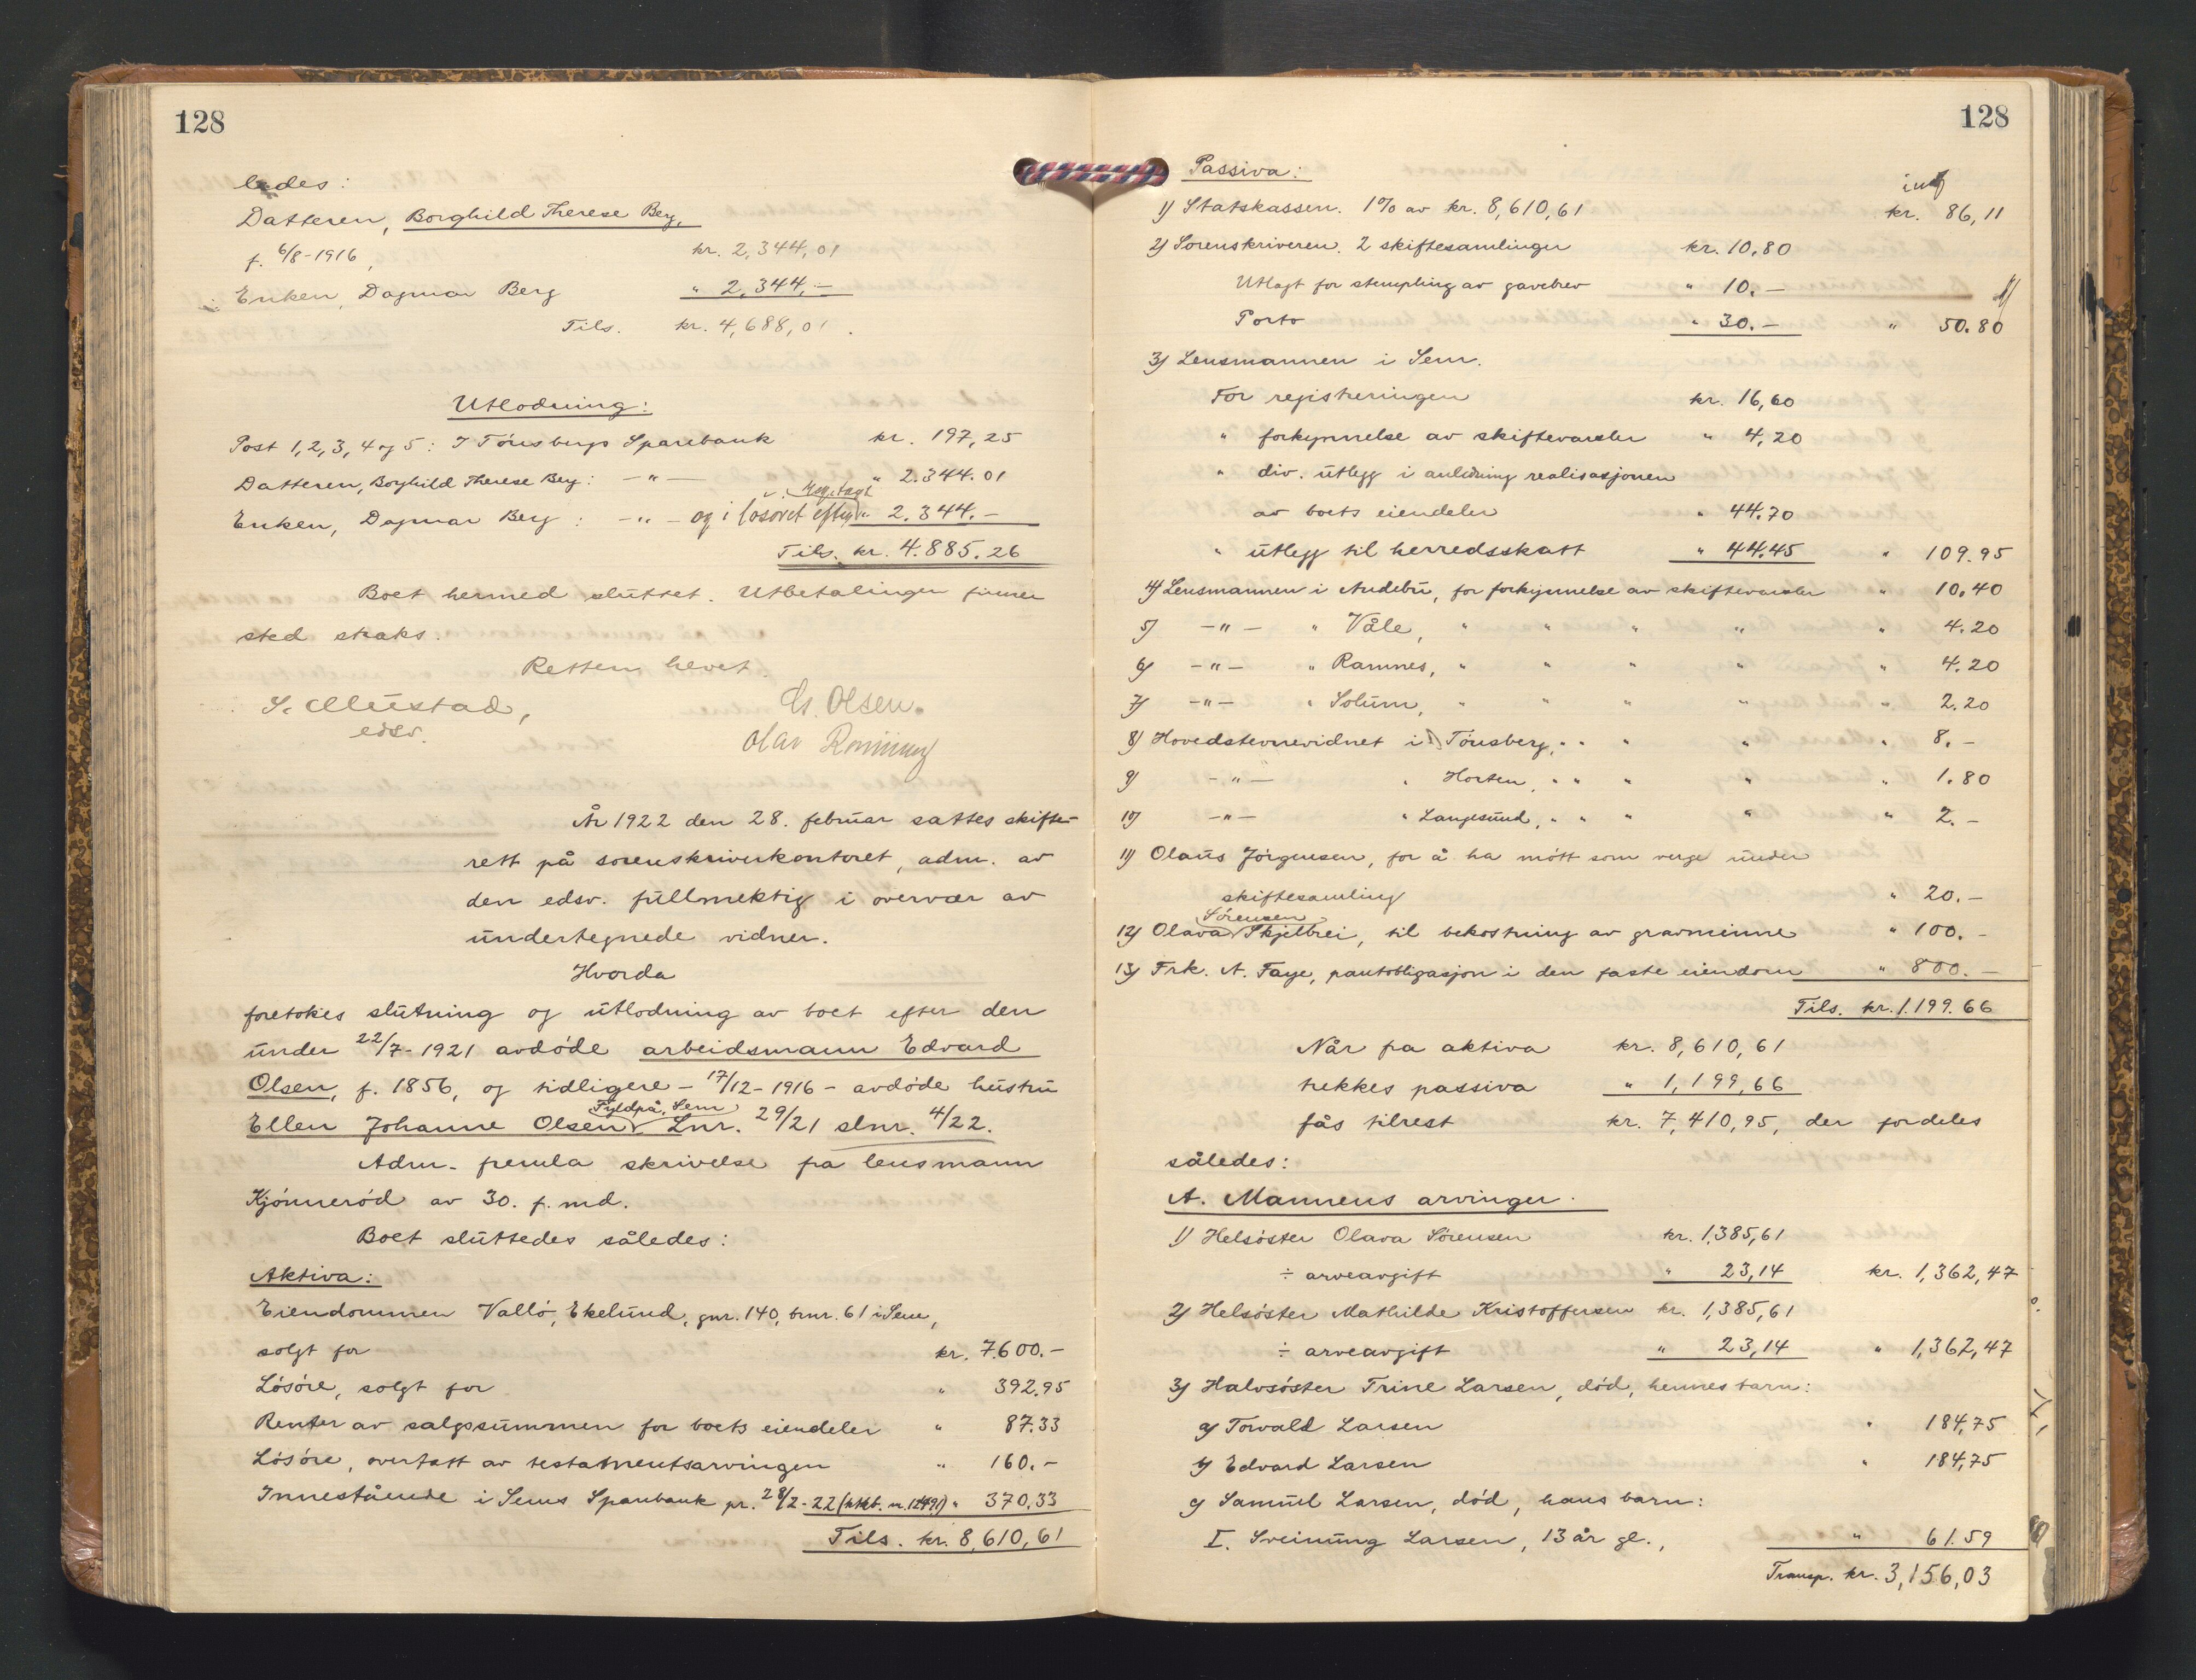 128
ledes:
Datteren, Borghild Therese Berg,
f. 6/8-1916, kr. 2,344,01
Enken, Dagmar Berg " 2,344,-
Tils. kr. 4,688,01.
Utlodning:
Post 1,2,3,4 og 5: I Tönsbergs Sparebank kr. 197,25
Datteren, Borghild Therese Berg: -"- " 2.344.01
Enken, Dagmar Berg: -"- og i løsøret " 2.344.-
Tils. kr. 4.885.26
Boet hermed sluttet. Utbetalingen finner
sted straks.
Retten hevet.
S. Mustad,
edsv.
Cs. Olsen.
Olav Ronning
År 1922 den 28. februar sattes skifte-
rett på sorenskriverkontoret, adm. av
den edsv. fullmektig i overvær av
undertegnede vidner.
Hvorda
foretokes slutning og utlodning av boet efter den
under 22/7-1921 avdöde arbeidsmann Edvard
Olsen, f. 1856, og tidligere - 17/12-1916 - avdöde hustru
Fyldpå, Sem
Ellen Johanne Olsen Lnr. 29/21 slnr. 4/22.
Adm. fremla skrivelse fra lensmann
Kjönneröd av 30. f. md.
Boet sluttedes således:
Aktiva:
Eiendommen Vallö, Ekelund, gnr. 140, brnr. 61 i Sem,
solgt for kr. 7.600.-
Lösöre, solgt for " 392.95
Renter av salgssummen for boets eiendeler " 87.33
Lösöre, overtatt av testamentsarvingen " 160.-
Innestående i Sems Sparebank pr. 28/2-22 " 370.33
Tils. kr. 8,610,61
128
Passiva:
1) Statskassen. 1% av kr. 8,610,61 kr. 86,11
2) Sorenskriveren. 2 skiftesamlinger kr. 10,80
Utlagt for stempling av gavebrev " 10.-
Porto " 30.- " 50.80
3) Lensmannen i Sem.
For registreringen kr. 16,60
" forkynnelse av skiftevarsler " 4,20
" div. utlegg i anledning realisasjonen
av boets eiendeler " 44.70
" utlegg til herredsskatt " 44.45 " 109.95
4) Lensmannen i Andebu, for forkynnelse av skiftevarsler " 10.40
5) -"- " Våle, " " " " " 4.20
6) -"- " Ramnes, " " " " " 4.20
7) -"- " Solum, " " " " " 2.20
8) Hovedstevnevidnet i Tönsberg, " " " " " 8.-
9) -"- " Horten, " " " " " 1.80
10) -"- " Langesund, " " " " " 2.-
11) Olaus Jörgensen, for å ha mött som verge under
skiftesamling " 20.-
Sörensen
12) Olava Skjelbrei, til bekostning av gravminne " 100.-
13) Frk. A. Faye, pantobligasjon i den faste eiendom " 800.-
Tils. kr. 1.199.66
Når fra aktiva kr. 8,610,61
trekkes passiva " 1,199,66
fås tilrest kr. 7,410,95, der fordeles
således:
A. Mannens arvinger.
1) Helsöster Olava Sörensen kr. 1,385,61
÷ arveavgift " 23,14 kr. 1,362,47
2) Helsöster Mathilde Kristoffersen kr. 1,385,61
÷ arveavgift " 23,14 " 1,362,47
3) Halvsöster Trine Larsen, död, hennes barn:
a) Torvald Larsen " 184,75
b) Edvard Larsen " 184,75
c) Samuel Larsen, död, hans barn:
I. Sveinung Larsen, 13 år gl., " 61.59
Transp. kr. 3,156,03